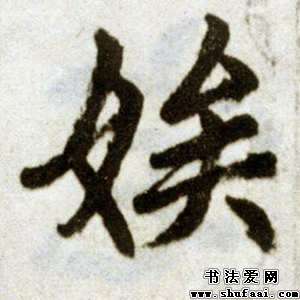 娭
书法爱网
www.shufaai.com